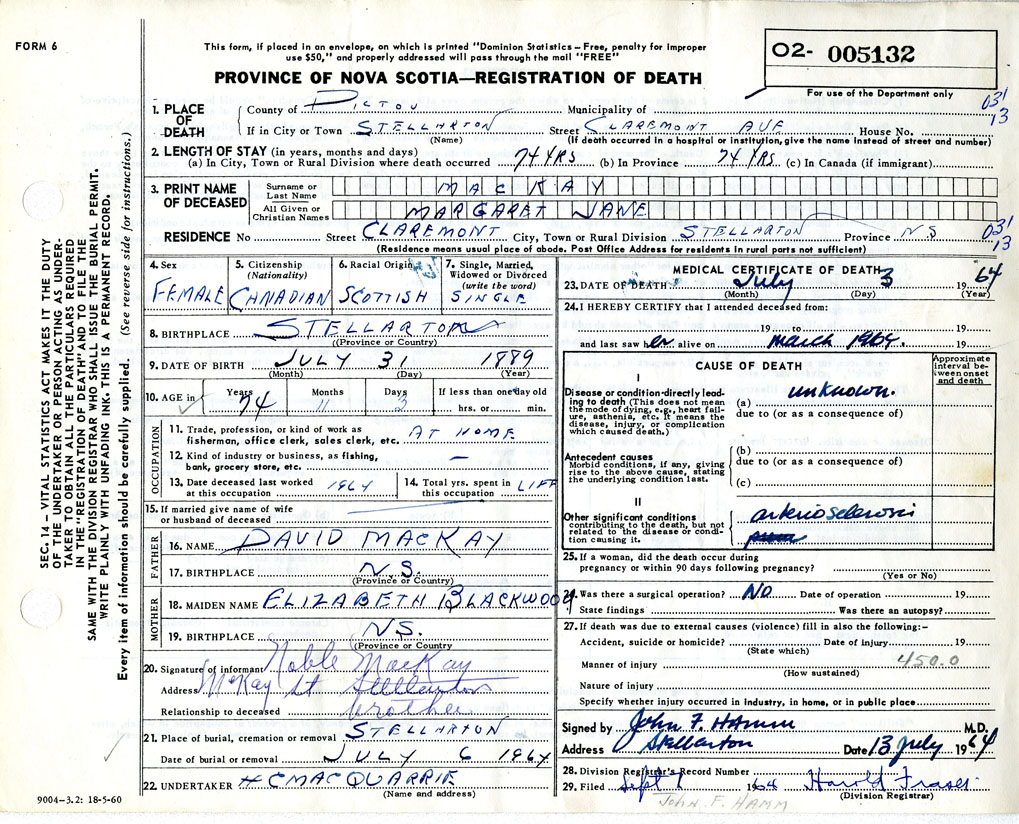 FORM 6
This form, if placed in an envelope, on which is printed "Dominion Statistics – Free, penalty for improper
use $50," and properly addressed will pass through the mail "FREE"
PROVINCE OF NOVA SCOTIA—REGISTRATION OF DEATH
02- 005132
For use of the Department only
031
13
1. PLACE OF DEATH
County of PICTOU Municipality of
If in City or Town STELLARTON Street CLAREMONT AVE House No.
(Name) (If death occurred in a hospital or institution, give the name instead of street and number)
2. LENGTH OF STAY (in years, months and days)
(a) In City, Town or Rural Division where death occurred 74 YRS (b) In Province 74 YRS (c) In Canada (if immigrant)
3. PRINT NAME OF DECEASED
Surname or Last Name MACKAY
All Given or Christian Names MARGARET JANE
RESIDENCE No Street CLAREMONT City, Town or Rural Division STELLARTON Province NS
031
13
(Residence means usual place of abode. Post Office Address for residents in rural parts not sufficient)
4. Sex FEMALE
5. Citizenship (Nationality) CANADIAN
6. Racial Origin SCOTTISH
7. Single, Married, Widowed or Divorced (write the word) SINGLE
8. BIRTHPLACE STELLARTON
(Province or Country)
9. DATE OF BIRTH JULY 31 1889
(Month) (Day) (Year)
10. AGE in Years Months Days If less than one day old
74 11 3 hrs. or min.
OCCUPATION
11. Trade, profession, or kind of work as
fisherman, office clerk, sales clerk, etc. AT HOME
12. Kind of industry or business, as fishing,
bank, grocery store, etc. —
13. Date deceased last worked at this occupation 1964
14. Total yrs. spent in this occupation LIFE
15. If married give name of wife
or husband of deceased
FATHER
16. NAME DAVID MACKAY
17. BIRTHPLACE N.S.
(Province or Country)
MOTHER
18. MAIDEN NAME ELIZABETH BLACKWOOD
19. BIRTHPLACE N.S.
(Province or Country)
20. Signature of informant Noble MacKay
Address McKay St Stellarton
Relationship to deceased brother
21. Place of burial, cremation or removal STELLARTON
Date of burial or removal JULY 6 1964
22. UNDERTAKER HCMACQUARRIE
(Name and address)
9004—3.2: 18-5-60
MEDICAL CERTIFICATE OF DEATH
23. DATE OF DEATH: July 3 1964
(Month) (Day) (Year)
24. I HEREBY CERTIFY that I attended deceased from:
19 to 19
and last saw her alive on march 1964. 19
CAUSE OF DEATH
Approximate interval between onset and death
I
Disease or condition directly leading to death (This does not mean the mode of dying, e.g., heart failure, asthenia, etc. It means the disease, injury, or complication which caused death.)
(a) unknown.
due to (or as a consequence of)
Antecedent causes
Morbid conditions, if any, giving rise to the above cause, stating the underlying condition last.
(b)
due to (or as a consequence of)
(c)
II
Other significant conditions
contributing to the death, but not related to the disease or condition causing it.
arteriosclerosis
25. If a woman, did the death occur during
pregnancy or within 90 days following pregnancy?
(Yes or No)
26. Was there a surgical operation? NO Date of operation 19
State findings Was there an autopsy?
27. If death was due to external causes (violence) fill in also the following:–
Accident, suicide or homicide? Date of injury 19
(State which)
Manner of injury 450.0
(How sustained)
Nature of injury
Specify whether injury occurred in industry, in home, or in public place
Signed by John F. Hamm M.D.
Address Stellarton Date 13 July 1964
28. Division Registrar's Record Number
29. Filed Sept 1 1964 Harold Fraser
(Division Registrar)
JOHN F. HAMM
SEC. 14 – VITAL STATISTICS ACT MAKES IT THE DUTY
OF THE UNDERTAKER OR PERSON ACTING AS UNDER-
TAKER TO OBTAIN ALL THE PARTICULARS REQUIRED
IN THE "REGISTRATION OF DEATH" AND TO FILE THE
SAME WITH THE DIVISION REGISTRAR WHO SHALL ISSUE THE BURIAL PERMIT.
WRITE PLAINLY WITH UNFADING INK. THIS IS A PERMANENT RECORD.
Every item of information should be carefully supplied. (See reverse side for instructions.)